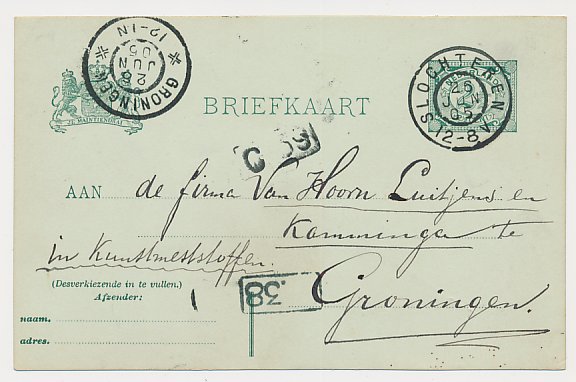 GRONINGEN
28 JUN 05
12-1N
JE MAINTIENDRAI
BRIEFKAART
SLOCHTEREN
12-8V
AAN de firma Van Hoorn Luitjens en
Kamminga te
in Kunstmeststoffen.
Groningen.
(Desverkiezende in te vullen.)
Afzender:
38
naam.
adres.